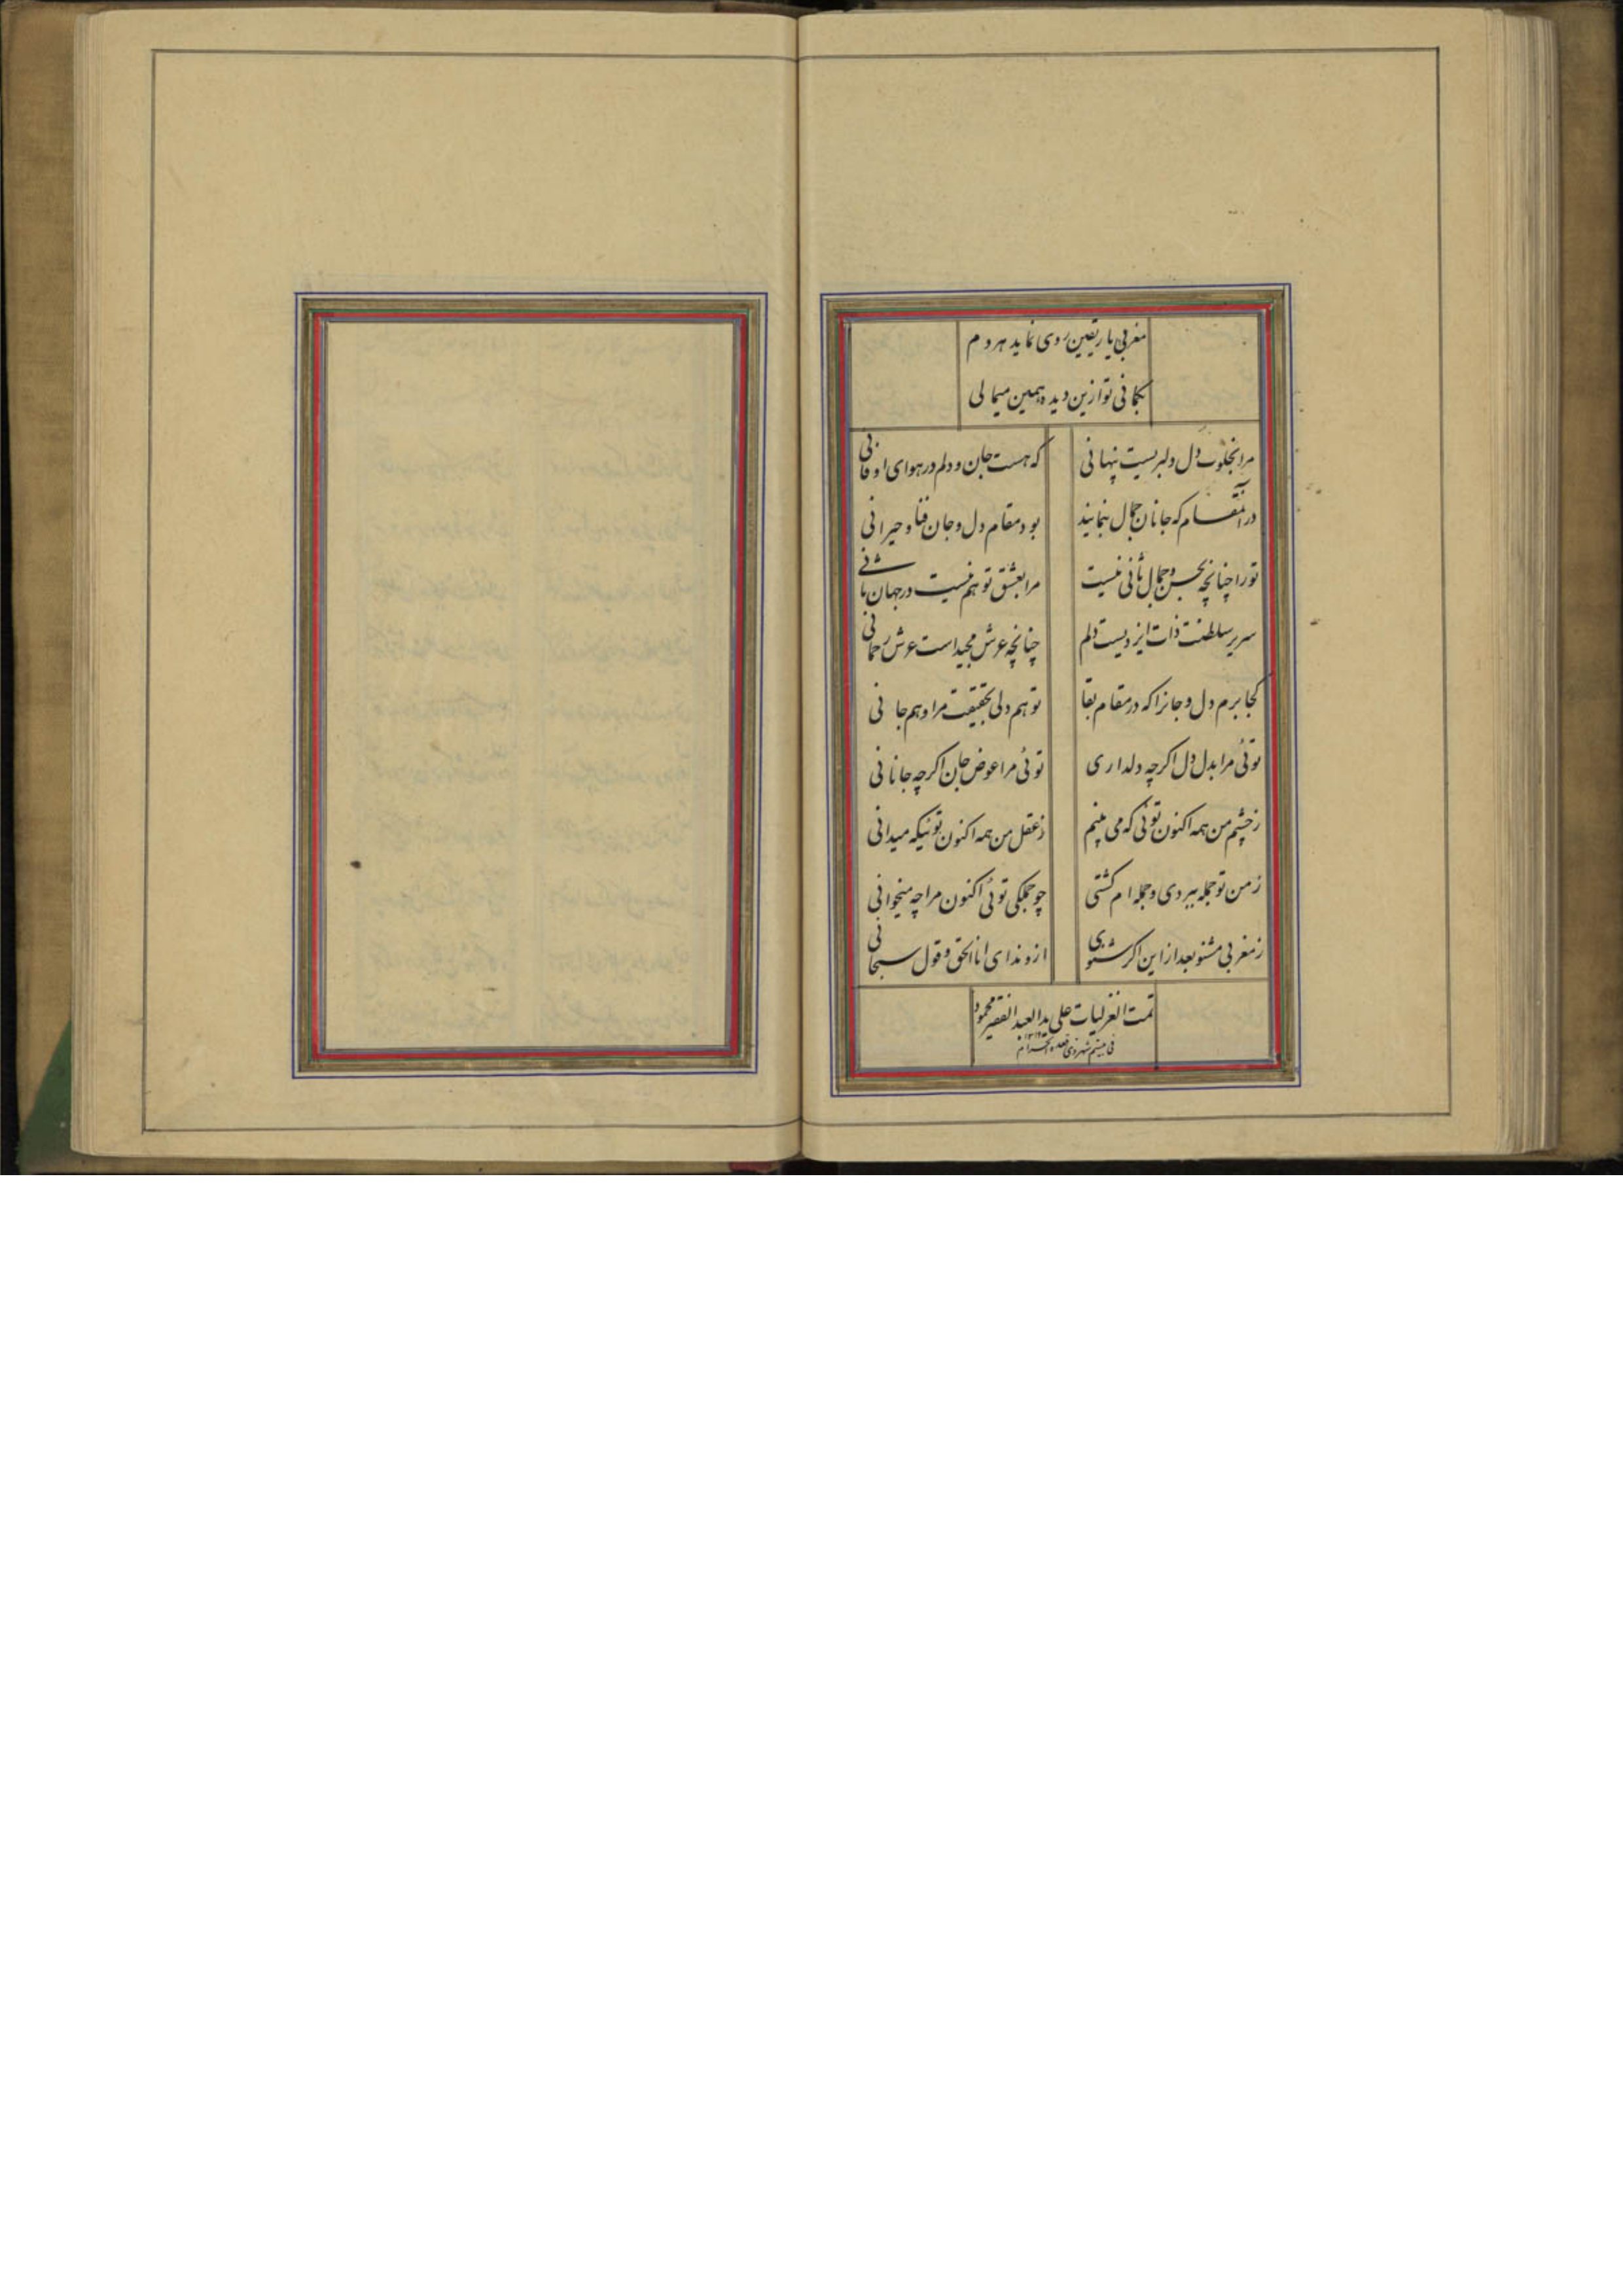 مغربی یار یقین روی نماید هر دم
بگمانی تو ازین دیده همین میمالی
مرا بخلوت دل دلبریست پنهانی
که هست جان و دلم در هوای او فانی
در آنمقام که جانان جمال بنمایند
بود مقام دل و جان فنا و حیرانی
تو را چنانچه بحسن و جمال ثانی نیست
مرا بعشق تو هم نیست در جهان ثانی
سریر سلطنت ذات ایزدیست دلم
چنانچه عرش مجید است عرش رحمانی
کجا برم دل و جانرا که در مقام بقا
تو هم دلی بحقیقت مرا و هم جانی
توئی مرا بدل دل اگرچه دلداری
توئی مرا عوض جان اگرچه جانانی
ز چشم من همه اکنون توئی که می بینم
ز عقل من همه اکنون توئیکه میدانی
ز من تو جمله ببردی و جمله ام گشتی
چو جملگی توئی اکنون مرا چه میخوانی
ز مغربی مشنو بعد از این اگر شنوی
ازو ندای انا الحق و قول سبحانی
تمت الغزلیات علی ید العبد الفقیر محمود
فی شهر ذی قعده الحرام